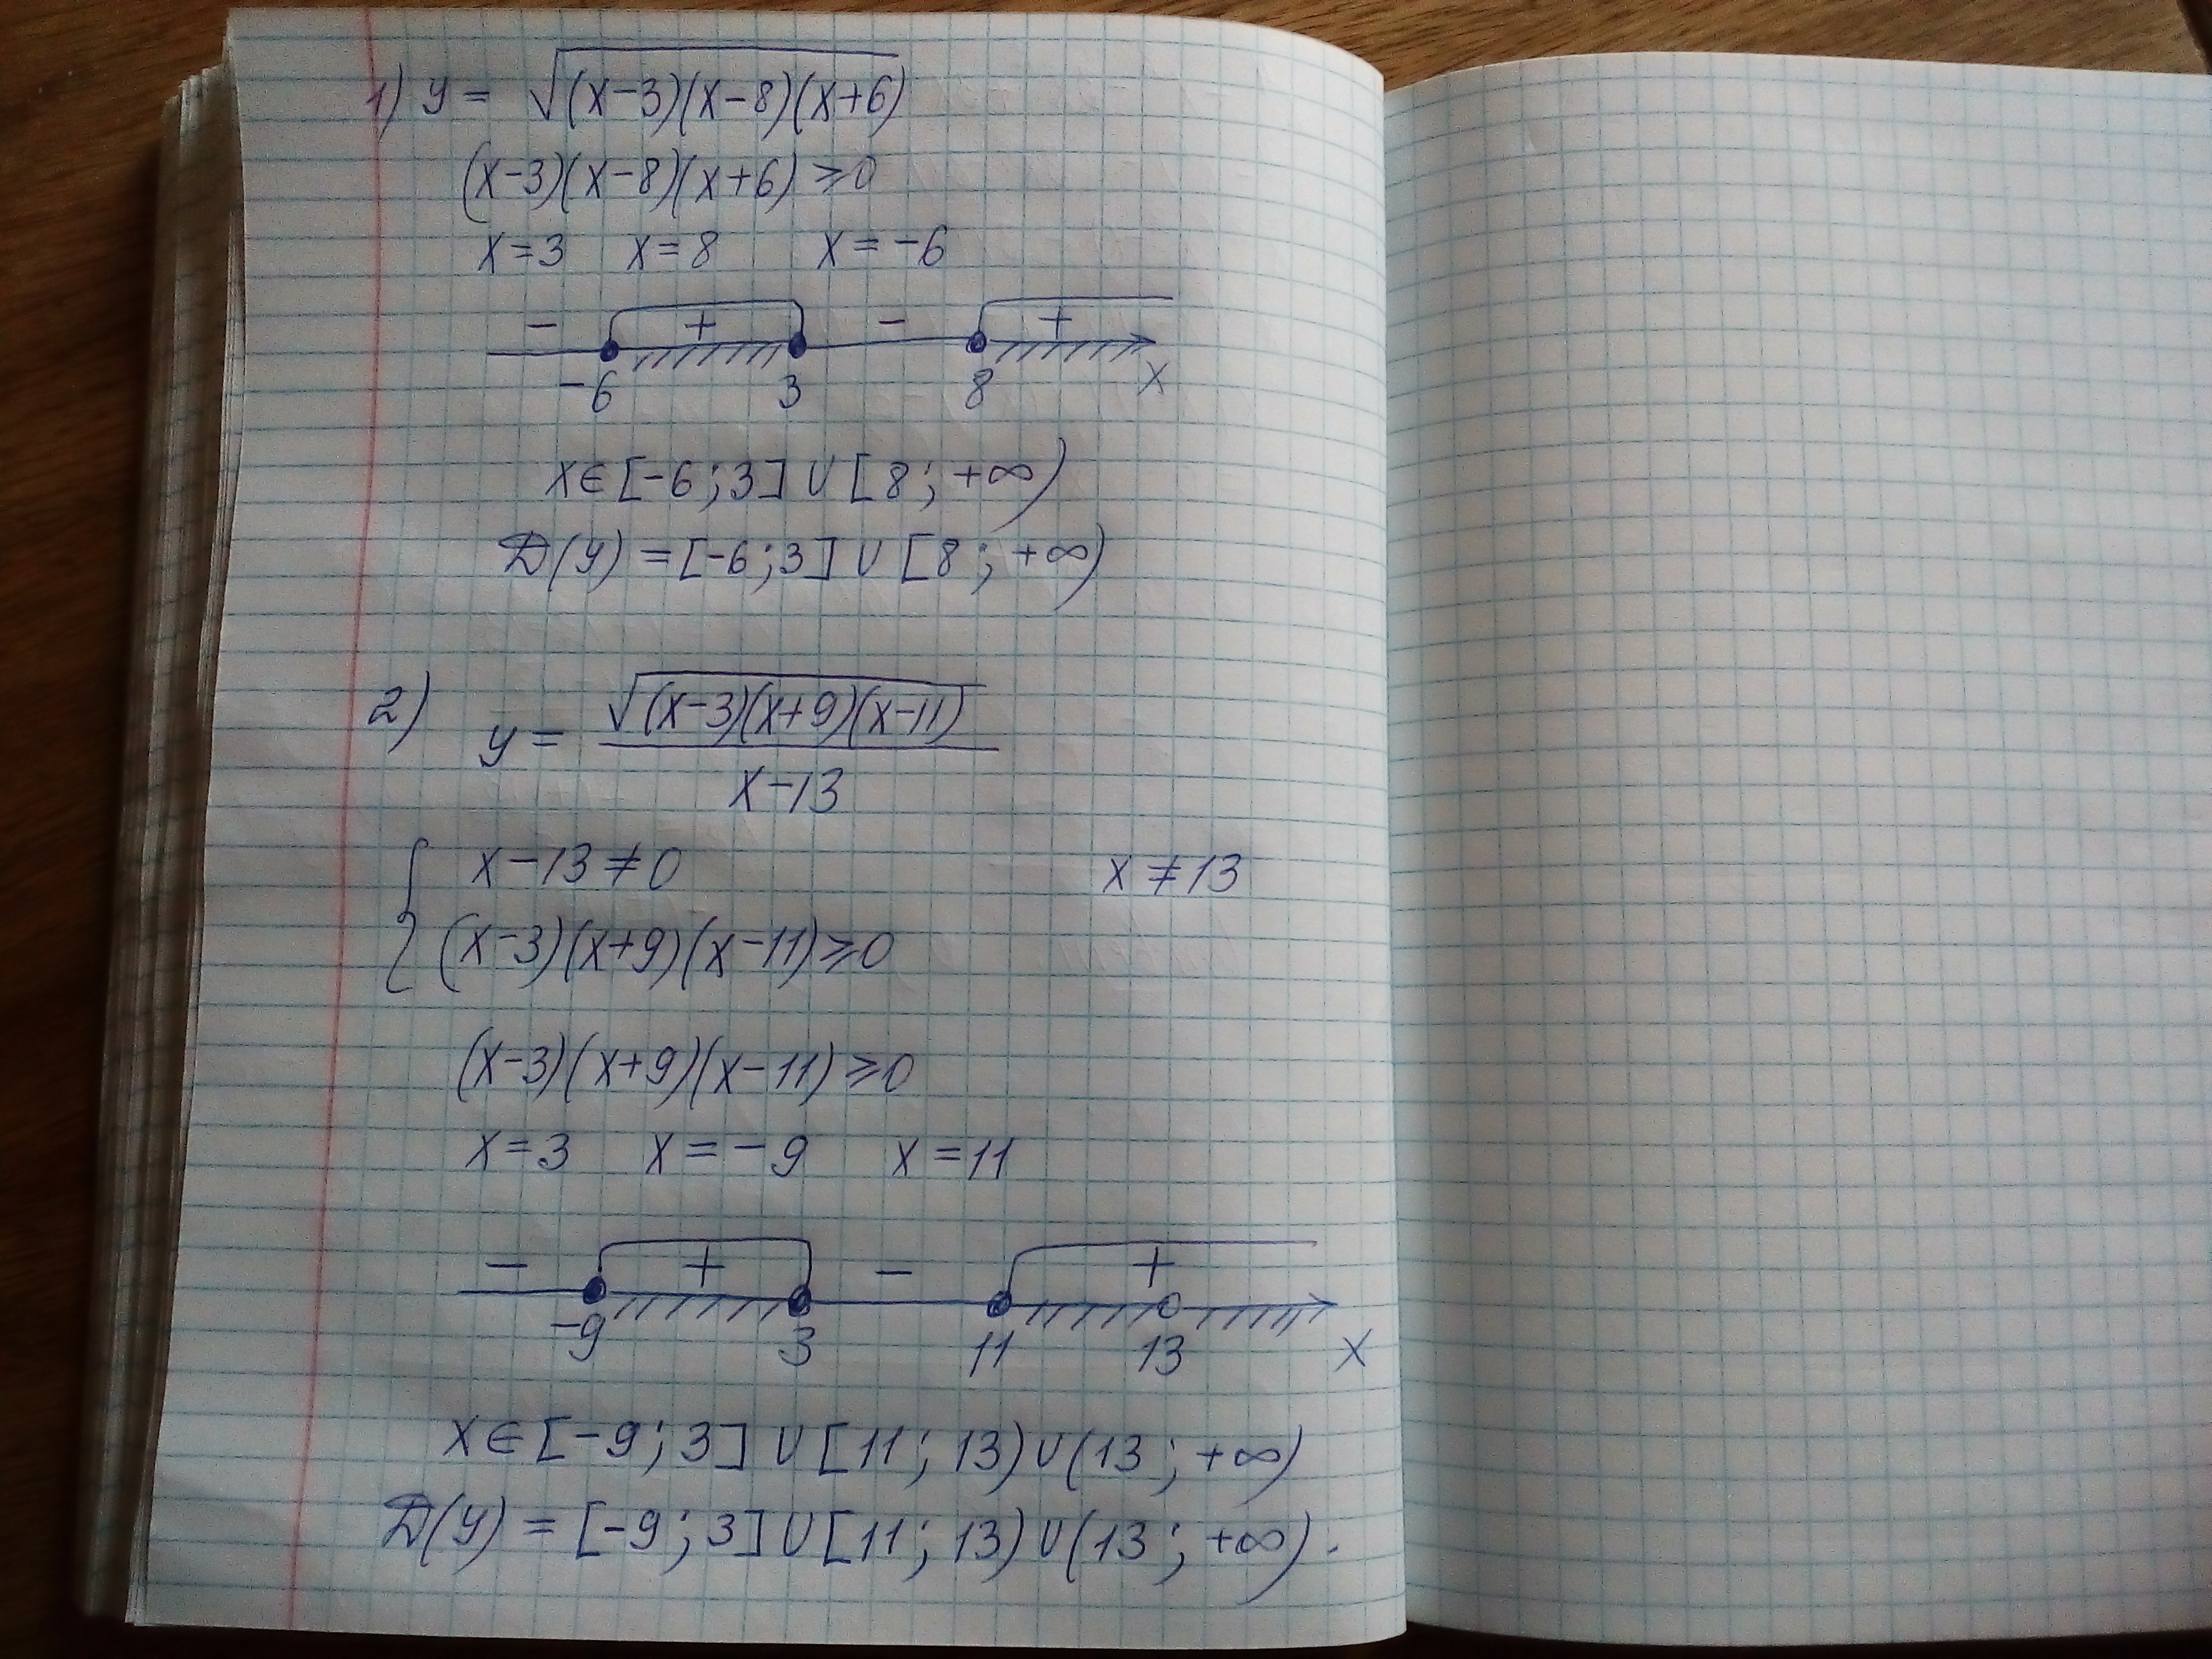 1) y = √(x-3)(x-8)(x+6)
(x-3)(x-8)(x+6) ⩾ 0
x=3 x=8 x=-6
- + - +
-6 3 8 x
x∈[-6;3]∪[8;+∞)
D(y)=[-6;3]∪[8;+∞)
2) y = √(x-3)(x+9)(x-11) / x-13
{ x-13≠0 x≠13
(x-3)(x+9)(x-11)⩾0
(x-3)(x+9)(x-11)⩾0
x=3 x=-9 x=11
- + - +
-9 3 11 13 x
x∈[-9;3]∪[11;13)∪(13;+∞)
D(y)=[-9;3]∪[11;13)∪(13;+∞).